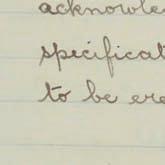 acknowle
specificat
to be ere